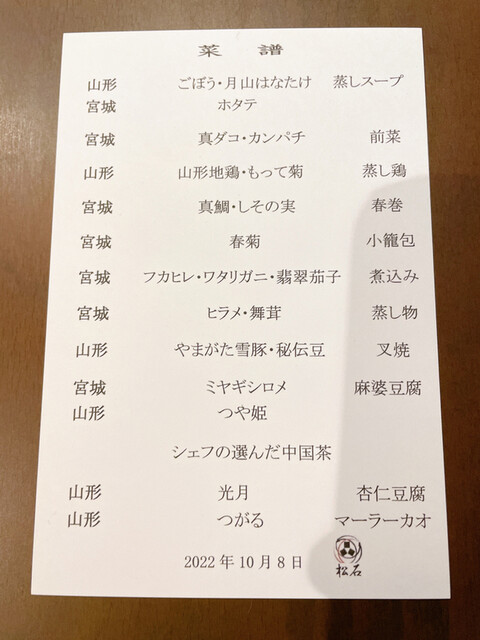 菜譜
山形 ごぼう・月山はなたけ 蒸しスープ
宮城 ホタテ
宮城 真ダコ・カンパチ 前菜
山形 山形地鶏・もって菊 蒸し鶏
宮城 真鯛・しその実 春巻
宮城 春菊 小籠包
宮城 フカヒレ・ワタリガニ・翡翠茄子 煮込み
宮城 ヒラメ・舞茸 蒸し物
山形 やまがた雪豚・秘伝豆 叉焼
宮城 ミヤギシロメ 麻婆豆腐
山形 つや姫
シェフの選んだ中国茶
山形 光月 杏仁豆腐
山形 つがる マーラーカオ
2022年10月8日
松石